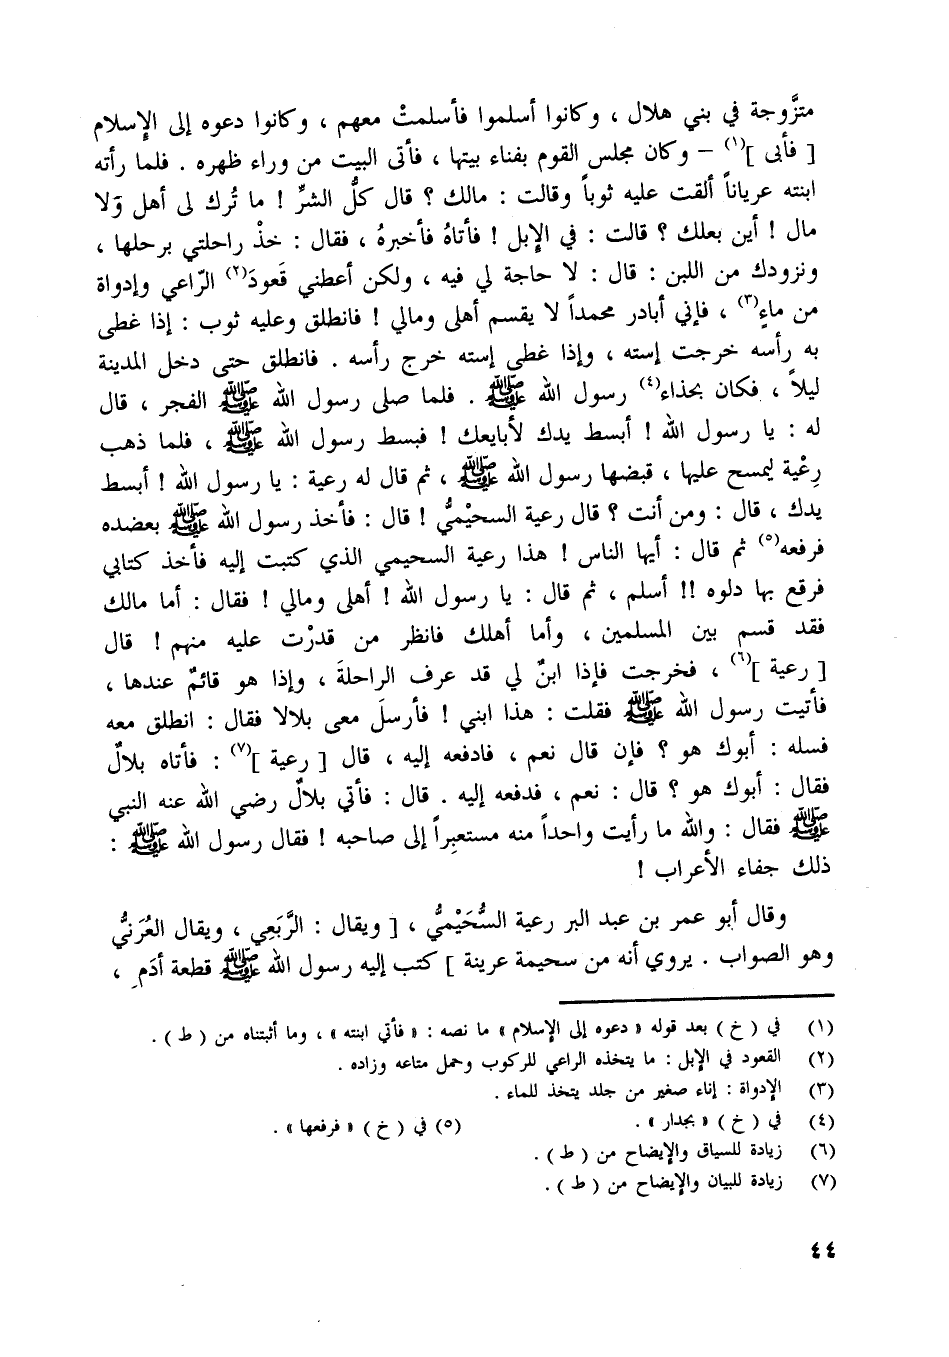 متزَّوجة في بني هلال ، وكانوا أسلموا فأسلمتْ معهم ، وكانوا دعوه إلى الإسلام
[ فأبى ](١) – وكان مجلس القوم بفناء بيتها ، فأتى البيت من وراء ظهره . فلما رأته
ابنته عرياناً ألقت عليه ثوباً وقالت : مالك ؟ قال كلُّ الشرِّ ! ما تُرك لى أهل وَلا
مال ! أين بعلك ؟ قالت : في الإبل ! فأتاهُ فأخبرهُ ، فقال : خذْ راحلتي برحلها ،
ونزودك من اللبن : قال : لا حاجة لي فيه ، ولكن أعطني قَعودَ(٢) الرّاعي وإدواة
من ماءٍ(٣) ، فإني أبادر محمداً لا يقسم أهلى ومالي ! فانطلق وعليه ثوب : إذا غطى
به رأسه خرجت إسته ، وإذا غطى إسته خرج رأسه . فانطلق حتى دخل المدينة
ليلاً ، فكان بحذاء(٤) رسول الله ﷺ . فلما صلى رسول الله ﷺ الفجر ، قال
له : يا رسول الله ! أبسط يدك لأبايعك ! فبسط رسول الله ﷺ ، فلما ذهب
رِعْية ليمسح عليها ، قبضها رسول الله ﷺ ، ثم قال له رعية : يا رسول الله ! أبسط
يدك ، قال : ومن أنت ؟ قال رعية السحيْميُّ ! قال : فأخذ رسول الله ﷺ بعضده
فرفعه(٥) ثم قال : أيها الناس ! هذا رعية السحيمي الذي كتبت إليه فأخذ كتابي
فرقع بها دلوه !! أسلم ، ثم قال : يا رسول الله ! أهلى ومالي ! فقال : أما مالك
فقد قسم بين المسلمين ، وأما أهلك فانظر من قدرْت عليه منهم ! قال
[ رعية ](٦) ، فخرجت فإذا ابنٌ لي قد عرف الراحلةَ ، وإذا هو قائمٌ عندها ،
فأتيت رسول الله ﷺ فقلت : هذا ابني ! فأرسلَ معى بلالا فقال : انطلق معه
فسله : أبوك هو ؟ فإن قال نعم ، فادفعه إليه ، قال [ رعية ](٧) : فأتاه بلالٌ
فقال : أبوك هو ؟ قال : نعم ، فدفعه إليه . قال : فأتي بلالٌ رضي الله عنه النبي
ﷺ فقال : والله ما رأيت واحداً منه مستعبِراً إلى صاحبه ! فقال رسول الله ﷺ :
ذلك جفاء الأعراب !
وقال أبو عمر بن عبد البر رعية السُّحَيْميُّ ، [ ويقال : الرَّبَعِي ، ويقال العُرَنيُّ
وهو الصواب . يروي أنه من سحيمة عرينة ] كتب إليه رسول الله ﷺ قطعة أدَم ،
(١) في ( خ ) بعد قوله « دعوه إلى الإسلام » ما نصه : « فأتي ابنته » ، وما أثبتناه من ( ط ) .
(٢) القعود في الإبل : ما يتخذه الراعي للركوب وحمل متاعه وزاده .
(٣) الإدواة : إناء صغير من جلد يتخذ للماء .
(٤) في ( خ ) « بجدار » . (٥) في ( خ ) « فرفعها » .
(٦) زيادة للسياق والإيضاح من ( ط ) .
(٧) زيادة للبيان والإيضاح من ( ط ) .
٤٤